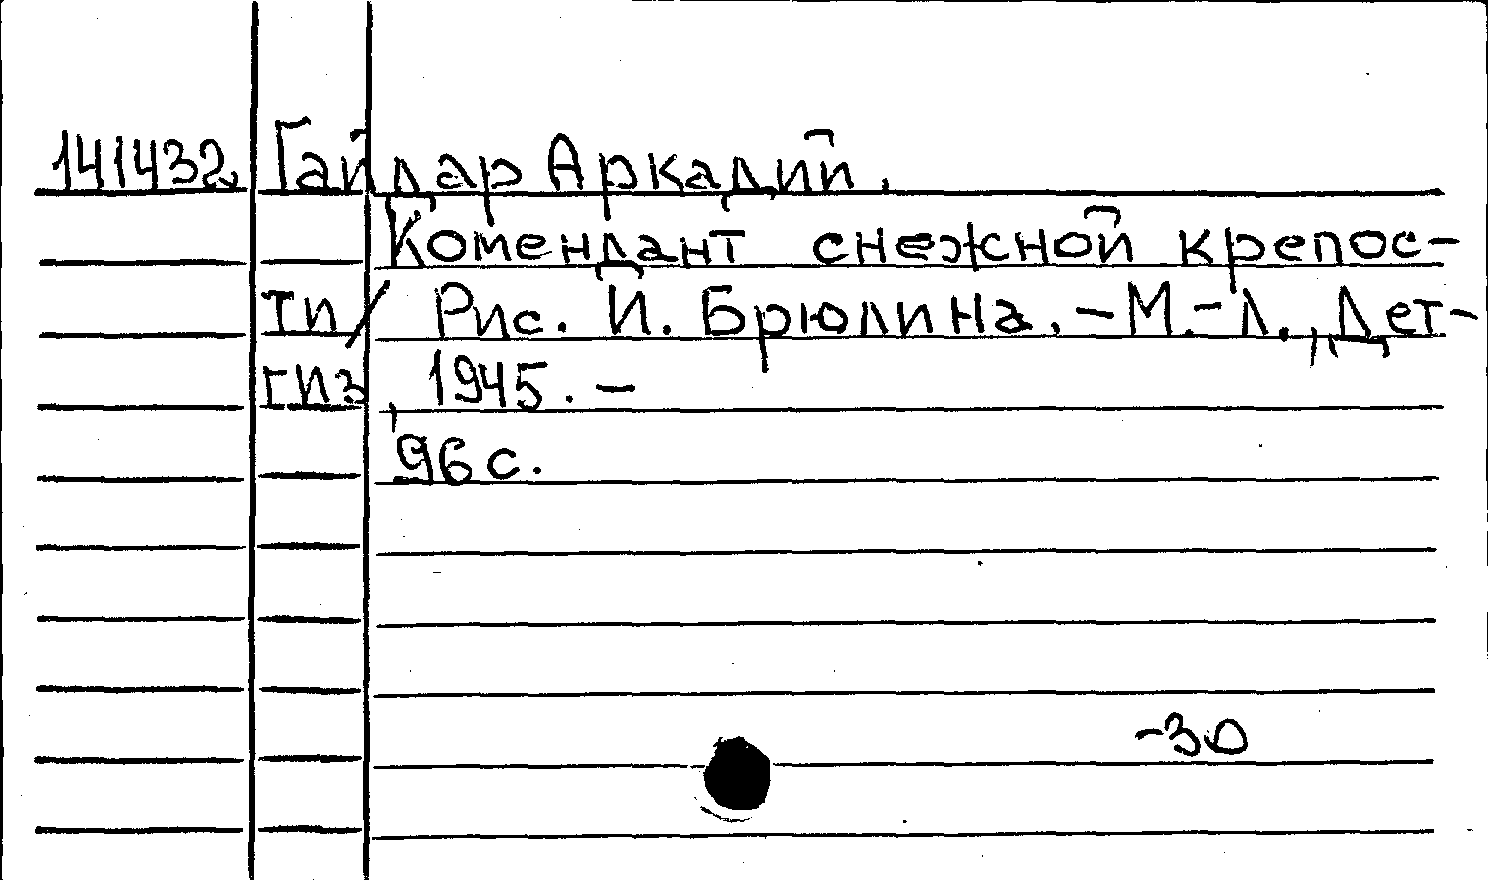 141432 Гайдар Аркадий.
Комендант снежной крепос-
ти/ Рис. Й. Брюлина. - М.-Л., Дет-
гиз, 1945. -
96 с.
-30